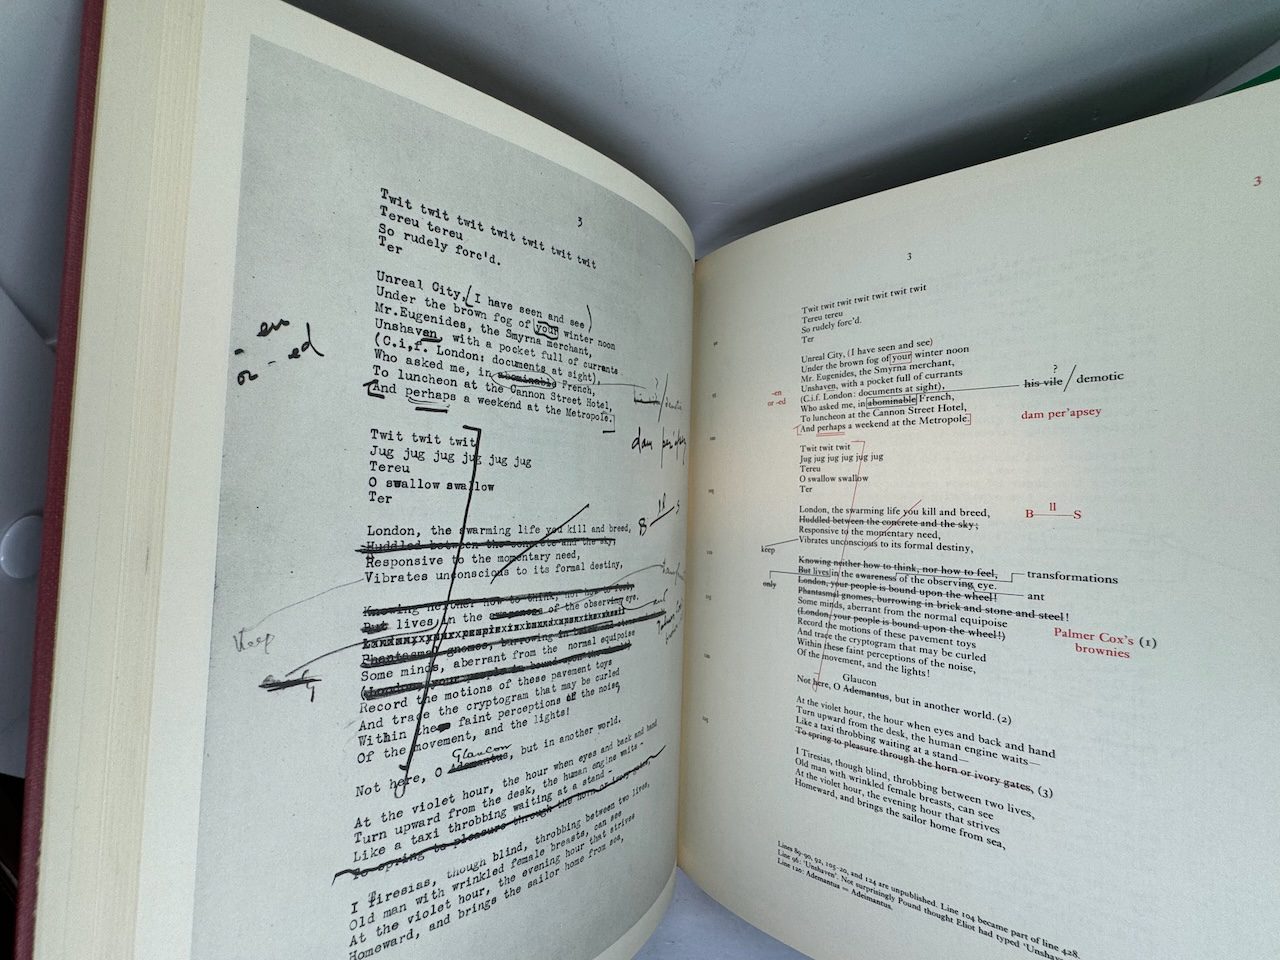 3
Twit twit twit twit twit twit twit
Tereu tereu
So rudely forc'd.
Ter
Unreal City, (I have seen and see)
Under the brown fog of your winter noon
Mr.Eugenides, the Smyrna merchant,
Unshaven, with a pocket full of currants
(C.i.f. London: documents at sight),
Who asked me, in abominable French,
To luncheon at the Cannon Street Hotel,
And perhaps a weekend at the Metropole.
-en
or -ed
?
/demotic
dam per'apsey
Twit twit twit
Jug jug jug jug jug jug
Tereu
O swallow swallow
Ter
B ll S
London, the swarming life you kill and breed,
Huddled between the concrete and the sky,
Responsive to the momentary need,
Vibrates unconscious to its formal destiny,
Keep
Knowing neither how to think, nor how to feel,
But lives in the awareness of the observing eye.
Phantasmal gnomes, burrowing in brick and
Some minds, aberrant from the normal equipoise
(London, your people is bound upon the wheel!)
Record the motions of these pavement toys
And trace the cryptogram that may be curled
Within these faint perceptions of the noise,
Of the movement, and the lights!
Glaucon
Not here, O Ademantus, but in another world.
At the violet hour, the hour when eyes and back and hand
Turn upward from the desk, the human engine waits -
Like a taxi throbbing waiting at a stand -
To spring to pleasure through the horn or ivory gates,
I Tiresias, though blind, throbbing between two lives,
Old man with wrinkled female breasts, can see
At the violet hour, the evening hour that strives
Homeward, and brings the sailor home from sea,
3
3
Twit twit twit twit twit twit twit
Tereu tereu
So rudely forc'd.
Ter
Unreal City, (I have seen and see)
Under the brown fog of your winter noon
Mr. Eugenides, the Smyrna merchant,
Unshaven, with a pocket full of currants
(C.i.f. London: documents at sight),
Who asked me, in abominable French,
To luncheon at the Cannon Street Hotel,
And perhaps a weekend at the Metropole.
-en
or -ed
?
his vile / demotic
dam per'apsey
Twit twit twit
Jug jug jug jug jug jug
Tereu
O swallow swallow
Ter
London, the swarming life you kill and breed,
B ll S
Huddled between the concrete and the sky;
Responsive to the momentary need,
Vibrates unconscious to its formal destiny,
keep
Knowing neither how to think, nor how to feel,
But lives in the awareness of the observing eye.
transformations
London, your people is bound upon the wheel!
only
ant
Phantasmal gnomes, burrowing in brick and stone and steel!
Some minds, aberrant from the normal equipoise
(London, your people is bound upon the wheel!)
Palmer Cox's (1)
brownies
Record the motions of these pavement toys
And trace the cryptogram that may be curled
Within these faint perceptions of the noise,
Of the movement, and the lights!
Glaucon
Not here, O Ademantus, but in another world. (2)
At the violet hour, the hour when eyes and back and hand
Turn upward from the desk, the human engine waits—
Like a taxi throbbing waiting at a stand—
To spring to pleasure through the horn or ivory gates, (3)
I Tiresias, though blind, throbbing between two lives,
Old man with wrinkled female breasts, can see
At the violet hour, the evening hour that strives
Homeward, and brings the sailor home from sea,
Lines 89-90, 92, 105-20, and 124 are unpublished. Line 104 became part of line 428.
Line 96: 'Unshaven'. Not surprisingly Pound thought Eliot had typed
Line 120: Ademantus = Adeimantus.